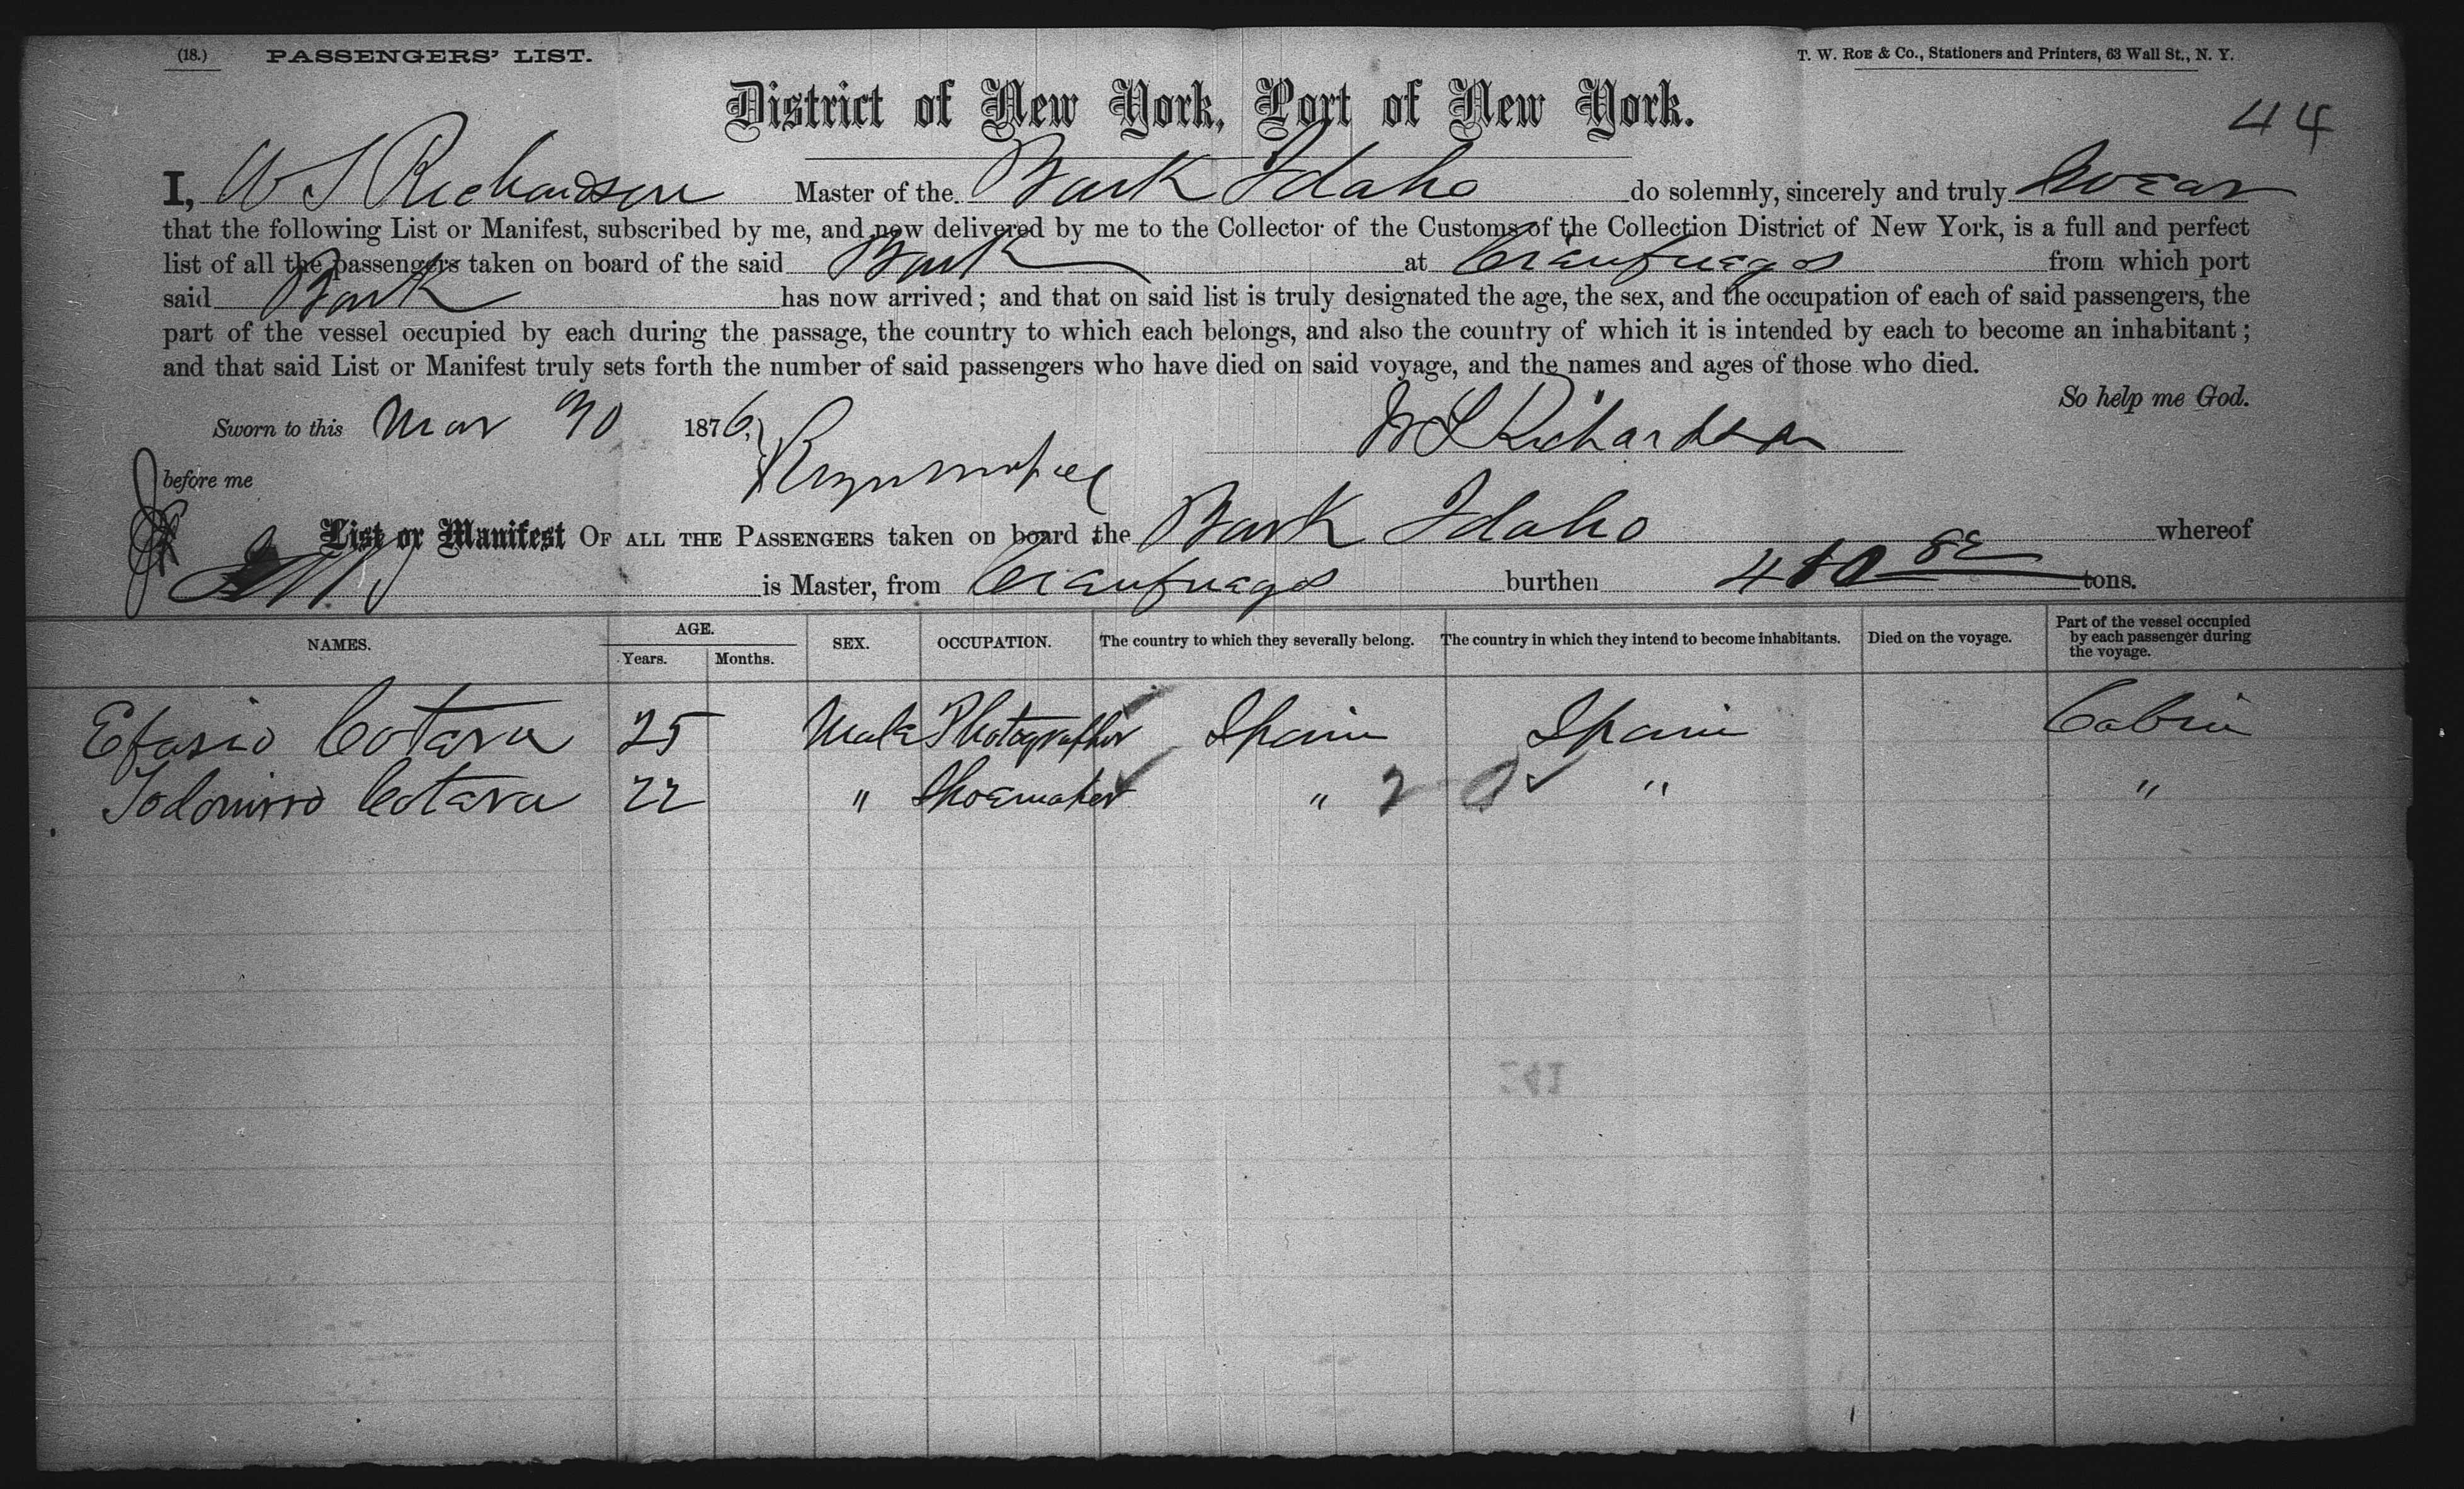 (18.) PASSENGERS' LIST. T. W. ROE & Co., Stationers and Printers, 63 Wall St., N. Y.
District of New York, Port of New York.
44
I, W S Richardson Master of the Bark Idaho do solemnly, sincerely and truly swear
that the following List or Manifest, subscribed by me, and now delivered by me to the Collector of the Customs of the Collection District of New York, is a full and perfect
list of all the passengers taken on board of the said Bark at Cienfuegos from which port
said Bark has now arrived; and that on said list is truly designated the age, the sex, and the occupation of each of said passengers, the
part of the vessel occupied by each during the passage, the country to which each belongs, and also the country of which it is intended by each to become an inhabitant;
and that said List or Manifest truly sets forth the number of said passengers who have died on said voyage, and the names and ages of those who died.
So help me God.
Sworn to this Mar 30 1876, W S Richardson
before me
List or Manifest OF ALL THE PASSENGERS taken on board the Bark Idaho whereof
is Master, from Cienfuegos burthen tons.
NAMES. AGE. SEX. OCCUPATION. The country to which they severally belong. The country in which they intend to become inhabitants. Died on the voyage. Part of the vessel occupied by each passenger during the voyage.
Years. Months.
Efasio Cotara 25 Male Photographer Spain Spain Cabin
Cotara 22 " Shoemaker " 2 " "
241